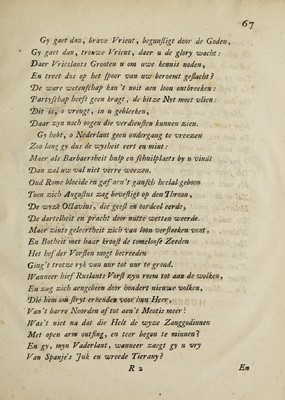 67
Gy gaet dan, brave Vrient, begunstigt door de Goden,
Gy gaet dan, trouwe Vrient, daer u de glory wacht:
Daer Vrieslants Grooten u om uwe kennis noden,
En treet dus op het spoor van uw beroemt geslacht?
De ware wetenschap kan't noit aen loon ontbreeken:
Partyschap heeft geen kragt, de bitze Nyt moet vlien:
Dit is, o vrengt, in u gebleeken,
Daar zyn noch oogen die verdiensten kunnen zien.
Gy hebt, o Nederlant geen ondergang te vreezen
Zoo lang gy dus de wysheit eert en mint:
Maer als Barbaersheit hulp en schuilplaets by u vindt
Dan zal uw val niet verre weezen.
Oud Rome bloeide en gaf aen't gansch heelal geboon
Toen zich Augustus zag bevestigt op den Throon,
De wyze Octavius, die geest en oordeel eerde,
De dartelheit en pracht door nutte wetten weerde.
Maer zints geleertheit zich van loon versteeken vont,
En Botheit met haer kroost de tomeloose Zeeden
Het hof der Vorsten mogt betreeden
Ging't trotze ryk van uur tot uur te grond.
Wanneer hief Ruslants Vorst zyn roem tot aan de wolken,
En zag zich aengebeen door hondert nieuwe volken,
Die hem om stryt erkenden voor hun Heer,
Van't barre Noorden af tot aen't Meotis meer?
Wae't niet na dat die Helt de wyze Zanggodinnen
Met open arm ontfing, en teer began te minnen?
En gy, myn Vaderlant, wanneer zaegt gy u vry
Van Spanje's Juk en wreede Tierany?
R 2
En